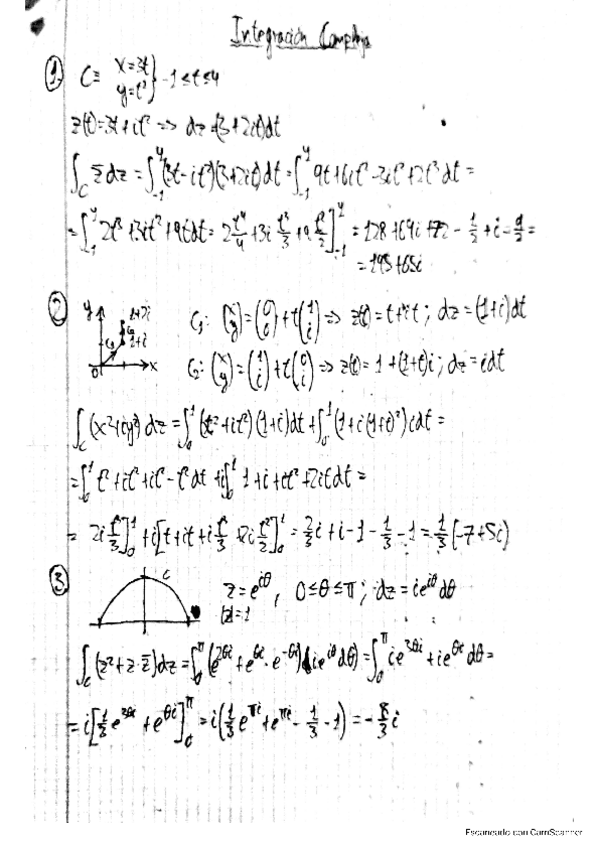 Integración Compleja
1. C ≡ x=3t y=t² } -1≤t≤4
z(t)=3t+it² => dz=(3+2it)dt
∫_C z̄ dz = ∫_{-1}^4 (3t-it²)(3+2it)dt = ∫_{-1}^4 9t+6it²-3it²+2t³ dt =
= ∫_{-1}^4 2t³+3it²+9t dt = 2 t⁴/4 + 3i t³/3 + 9 t²/2 ]_{-1}^4 = 128+64i+72 - 1/2 + i - 9/2 =
= 195+65i
2. y 1+2i C₂ 1+i C₁ 0 x
C₁: (x y)=(0 0)+t(1 1) => z(t)=t+it; dz=(1+i)dt
C₂: (x y)=(1 1)+t(0 1) => z(t)=1+(1+t)i; dz=idt
∫_C (x²+iy²) dz = ∫_0^1 (t²+it²)(1+i)dt + ∫_0^1 (1+i(1+t)²) i dt =
= ∫_0^1 t²+it²+it²-t² dt + i∫_0^1 1+i+it²+2it dt =
= 2i t³/3 ]_0^1 + i[t+it+i t³/3 + 2i t²/2]_0^1 = 2/3 i + i - 1 - 1/3 - 1 = 1/3 (-7+5i)
3. C z=e^{iθ}, 0≤θ≤π; dz=ie^{iθ}dθ
|z|=1
∫_C (z²+z·z̄)dz = ∫_0^π (e^{2θi}+e^{θi}·e^{-θi})(ie^{iθ}dθ) = ∫_0^π ie^{3θi}+ie^{θi} dθ =
= i[1/3 e^{3θi}+e^{θi}]_0^π = i(1/3 e^{πi}+e^{πi} - 1/3 - 1) = -8/3 i
Escaneado con CamScanner